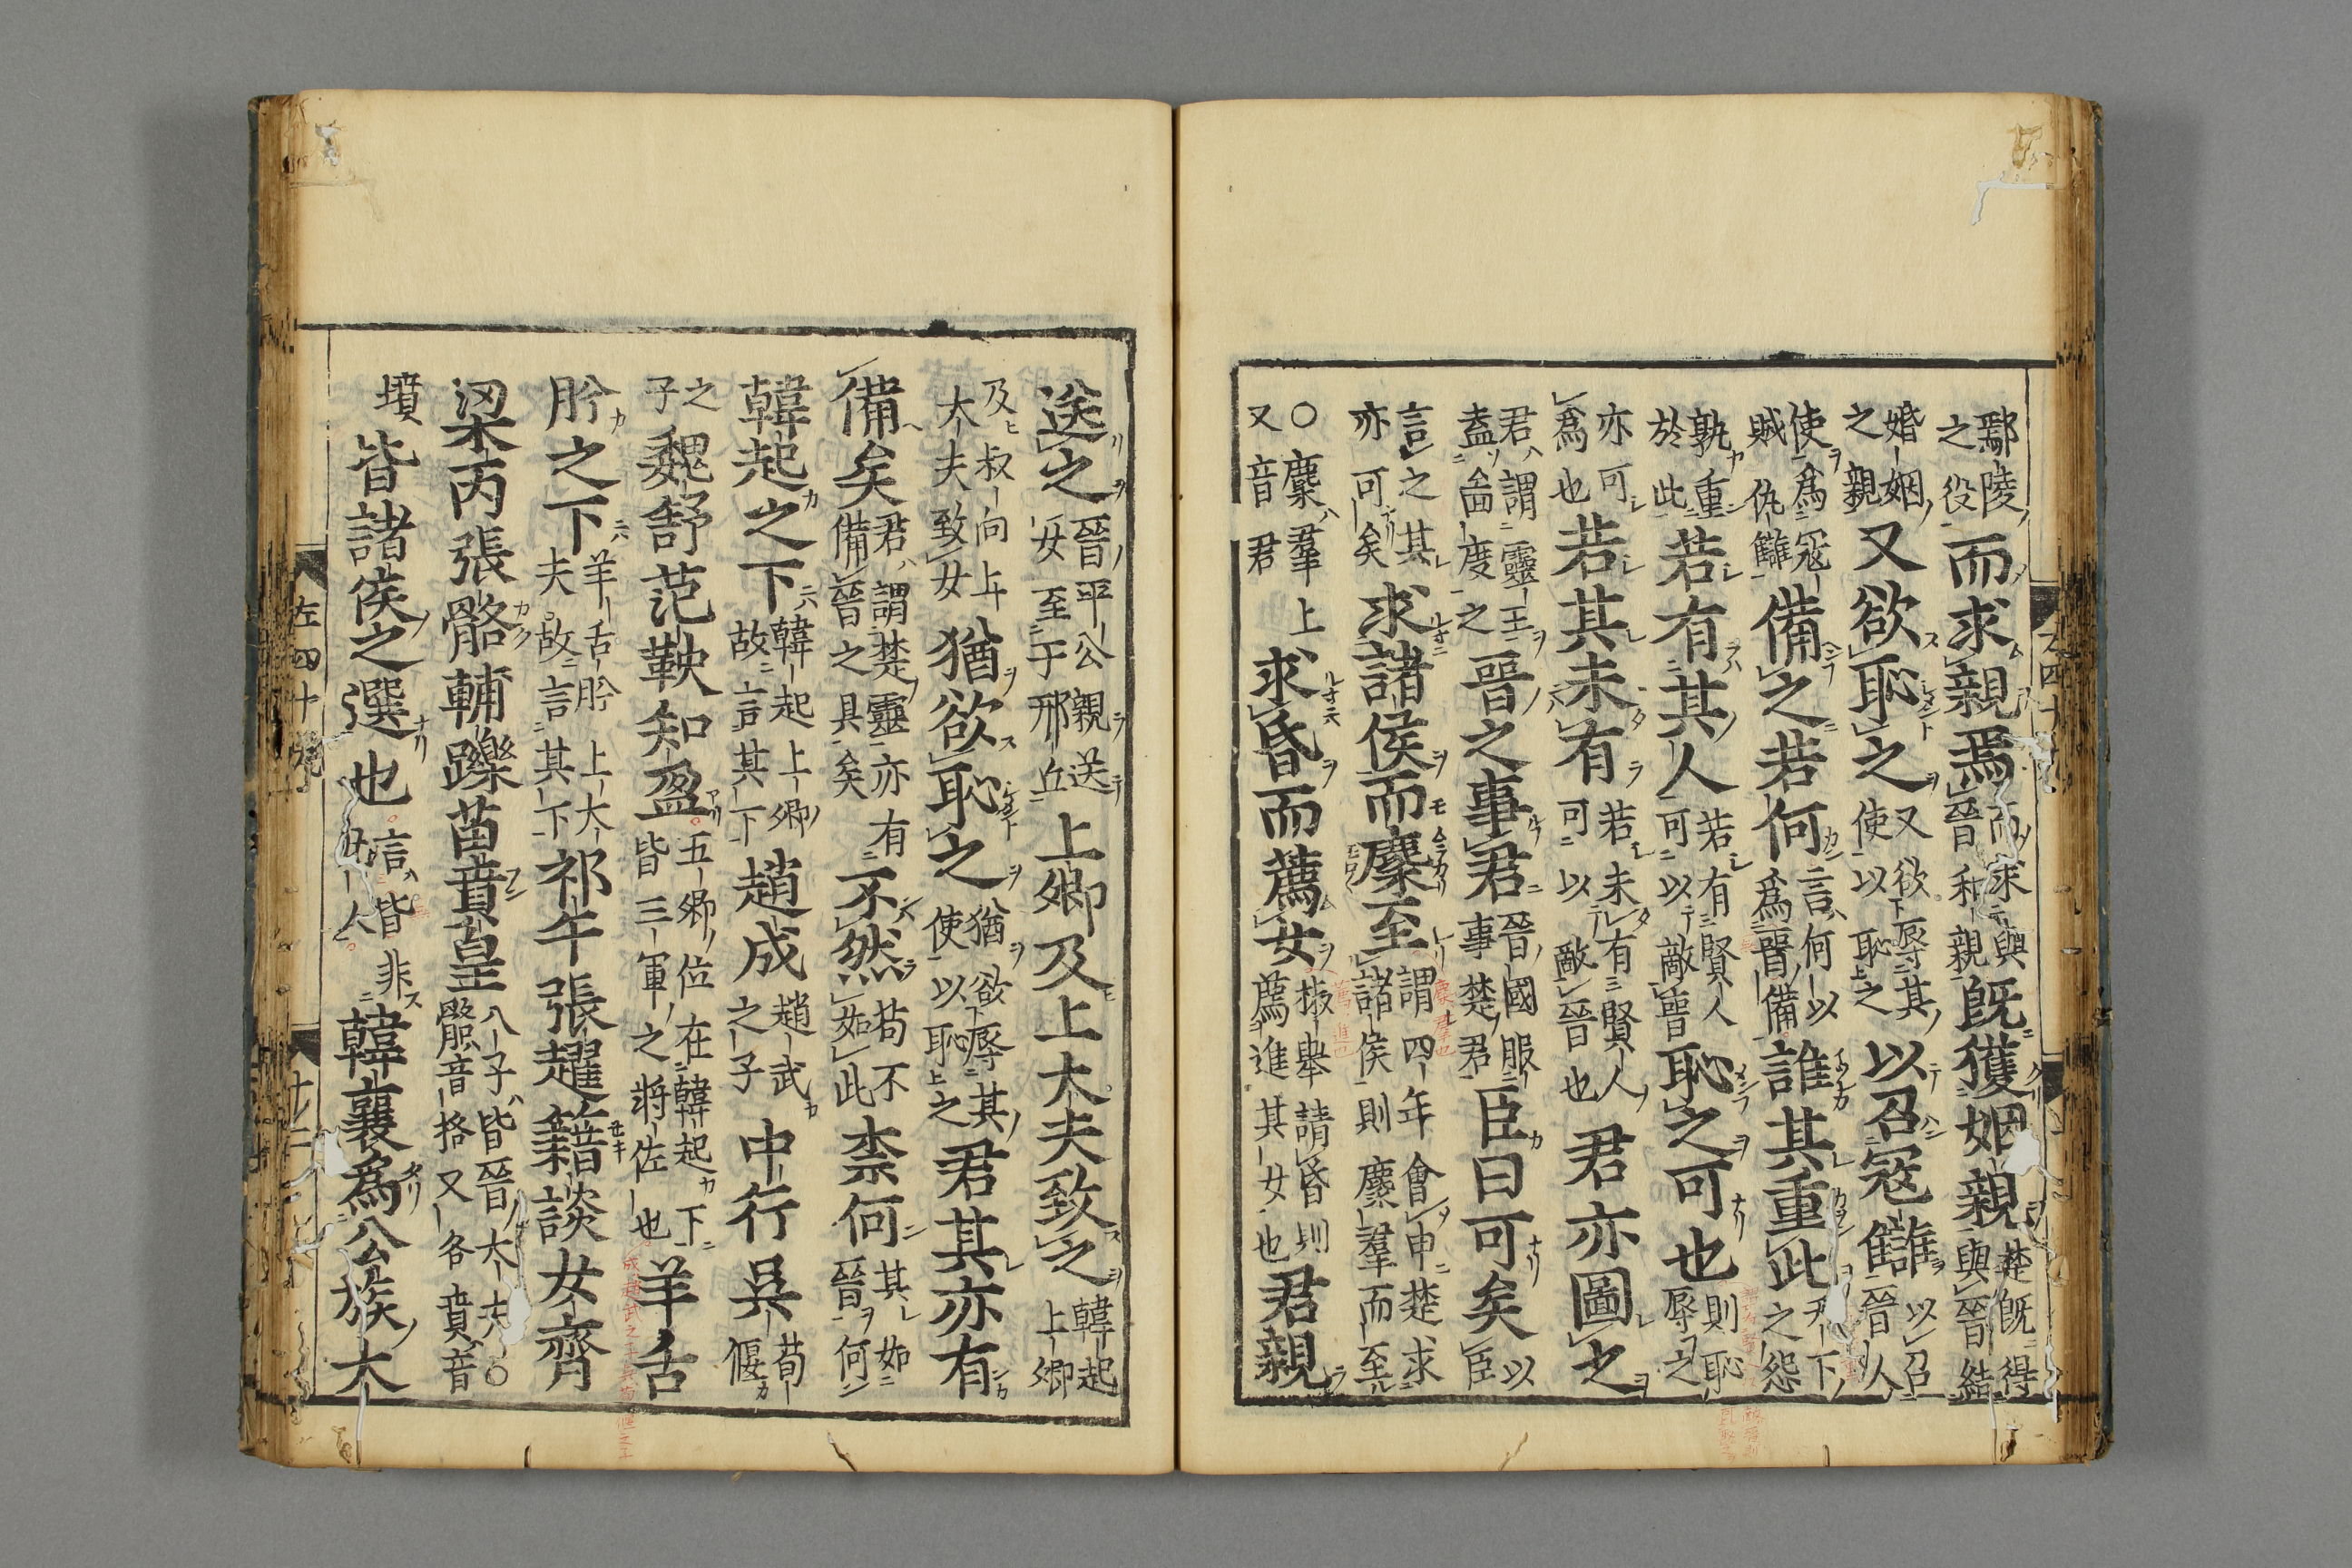 鄢陵之役而求親焉而求與晉和親既獲姻親楚既得與晉結
婚姻之親又欲恥之又欲辱其使以恥之以召寇讎以召晉人
使為寇賊仇讎備之若何言何以為晉備誰其重此天下之怨
孰重於此若有其人若有賢人可以敵晉恥之可也則恥辱之
亦可為也若其未有若未有賢人可以敵晉也君亦圖之
君謂靈王盍啚度之晉之事君晉國服事楚君臣曰可矣臣以
言之其亦可矣求諸侯而麇至謂四年會申楚求諸侯則麇羣而至
○麇羣上又音君求昏而薦女椒舉請昏則薦進其女也君親
送之晉平公親送女至于邢丘上卿及上大夫致之韓起上卿
及叔向上大夫致女猶欲恥之猶欲辱其使以恥之君其亦有
備矣君謂楚靈亦有備晉之具矣不然苟不如此柰何其如晉何
韓起之下韓起上卿故言其下趙成趙武之子中行吳荀偃
之子魏舒范鞅知盈五卿位在韓起下皆三軍之將佐也羊舌
肸之下羊舌肸上大夫故言其下祁午張趯籍談女齊
梁丙張骼輔躒苗賁皇八子皆晉大夫○骼音格又各賁音
墳皆諸侯之選也言皆非凡人韓襄為公族大
左四十
十二